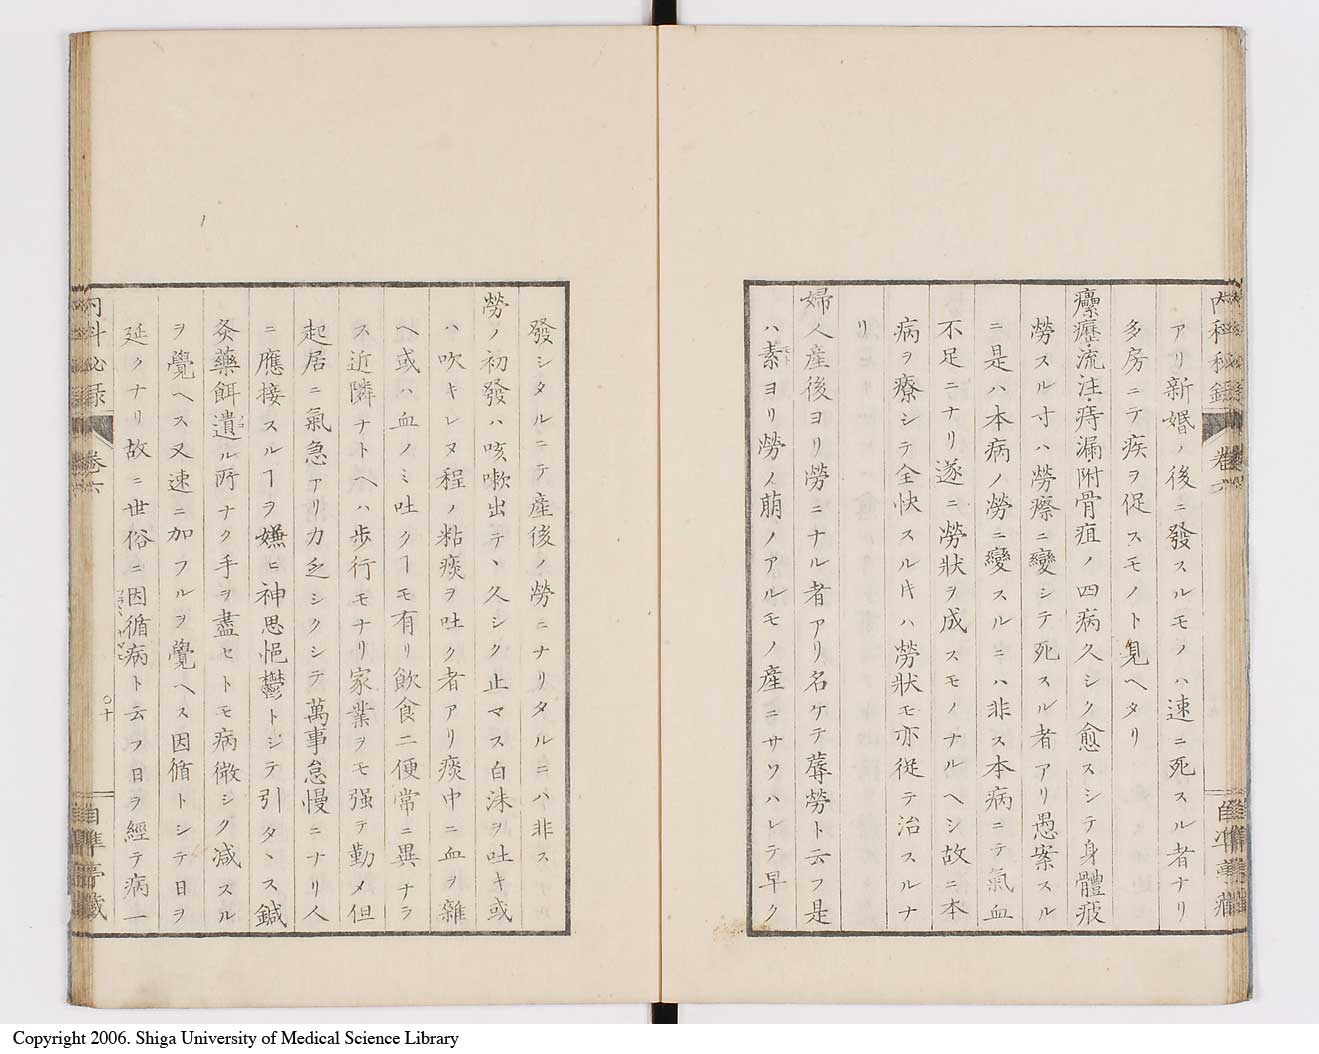 内科秘録 卷六
自準亭藏
アリ新婚ノ後ニ發スルモノハ速ニ死スル者ナリ
多房ニテ疾ヲ促スモノト見ヘタリ
瘰癧流注痔漏附骨疽ノ四病久シク愈スシテ身體疲
勞スル寸ハ勞瘵ニ變シテ死スル者アリ愚案スル
ニ是ハ本病ノ勞ニ變スルニハ非ス本病ニテ氣血
不足ニナリ遂ニ勞狀ヲ成スモノナルヘシ故ニ本
病ヲ療シテ全快スル𪜈ハ勞狀モ亦從テ治スルナ
リ
婦人産後ヨリ勞ニナル者アリ名ケテ蓐勞ト云フ是
ハ素ヨリ勞ノ萠ノアルモノ産ニサソハレテ早ク
モト
發シタルニテ産後ノ勞ニナリタルニハ非ス
勞ノ初發ハ咳嗽出テヽ久シク止マス白沫ヲ吐キ或
ハ吹キレヌ程ノ粘痰ヲ吐ク者アリ痰中ニ血ヲ雜
ヘ或ハ血ノミ吐クヿモ有リ飮食二便常ニ異ナラ
ス近隣ナトヘハ歩行モナリ家業ヲモ强テ勤メ但
起居ニ氣急アリ力乏シクシテ萬事怠慢ニナリ人
ニ應接スルヿヲ嫌ヒ神思悒鬱トシテ引タヽス鍼
灸藥餌遺ル所ナク手ヲ盡セトモ病微シク减スル
ヲ覺ヘス又速ニ加フルヲ覺ヘス因循トシテ日ヲ
延クナリ故ニ世俗ニ因循病ト云フ日ヲ經テ病一
内科秘録 卷六
○十
自準亭藏
Copyright 2006. Shiga University of Medical Science Library